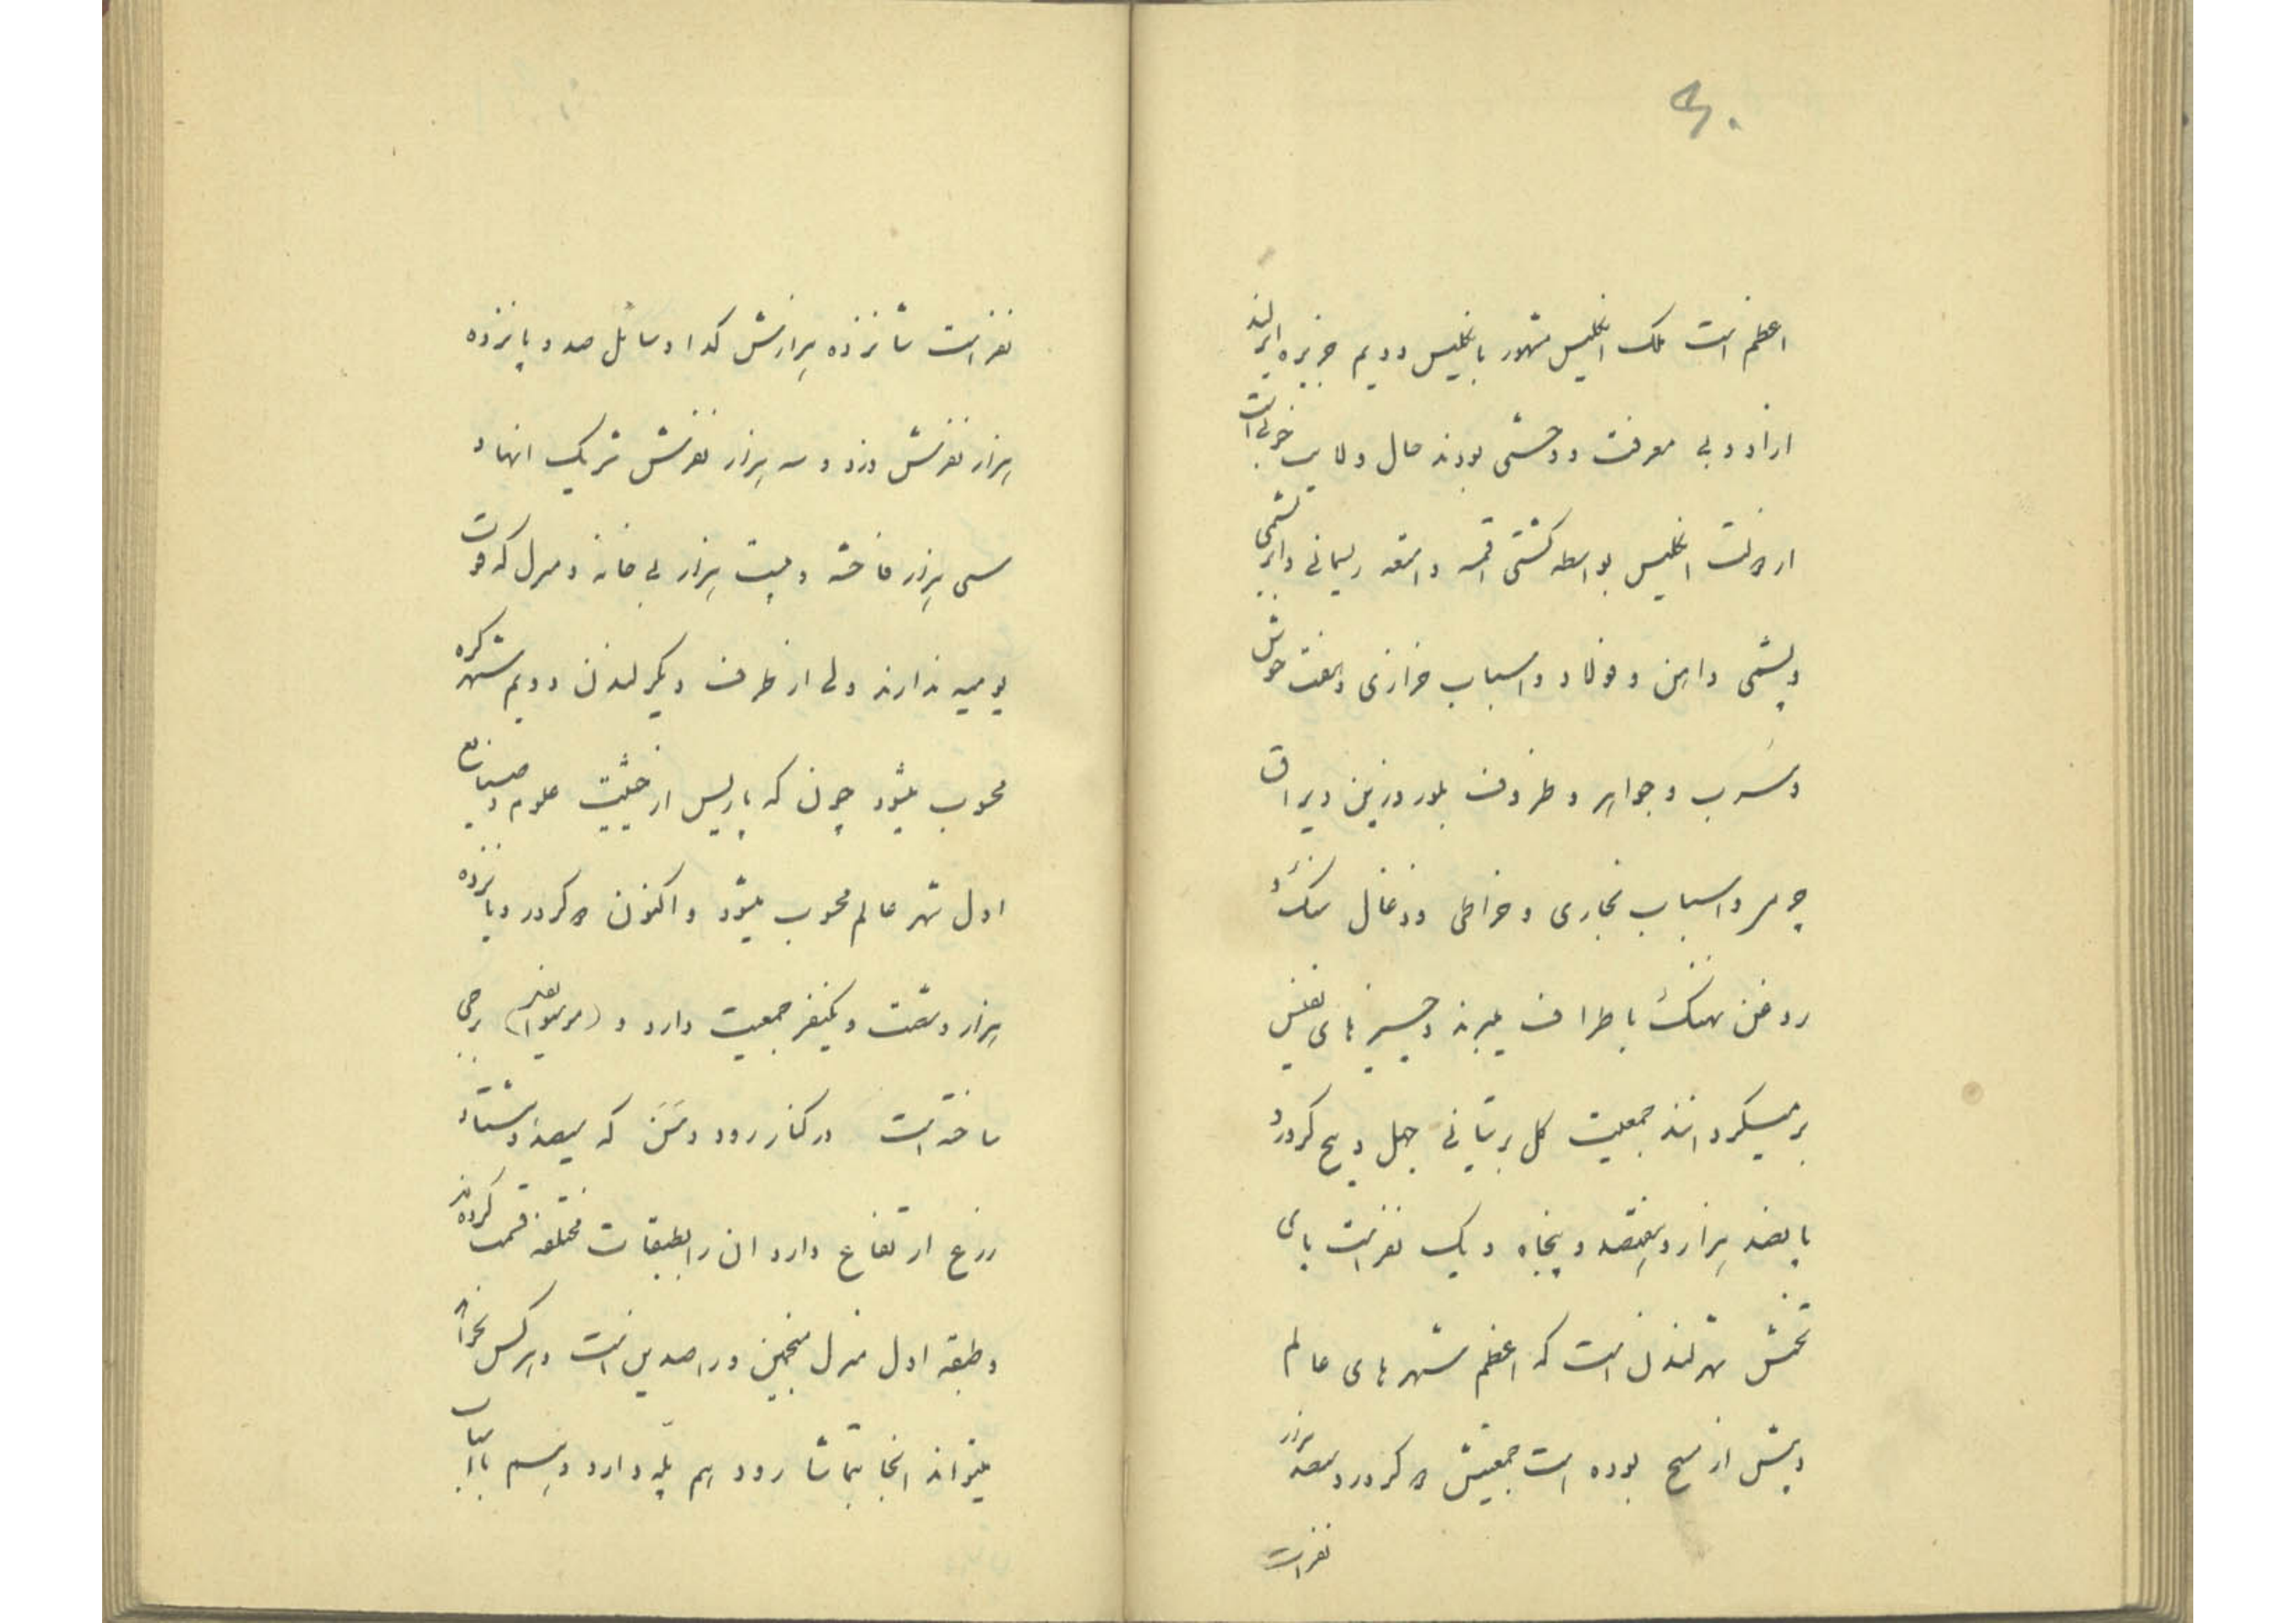 ۴۰
اعظم است ملک انگلیس مشهور بانگلیس دویم جزیره ایرلند
ازاد و بی معرفت و وحشی بودند حال ولایت خوبی است
از دولت انگلیس بواسطه کشتی اقمشه و امتعه ریسمانی و ابریشمی
و پشمی و اهن و فولاد و اسباب خرازی و نفت خوش
و سرب و جواهر و ظروف بلور و زین و یراق
چرمی و اسباب نجاری و خراطی و زغال سنگ و
روغن نهنگ باطراف میبرند و چیزهای نفیس
برمیگردانند جمعیت کل برتانی چهل و پنج کرور و
پانصد هزار و هفتصد و پنجاه و یک نفر است پای
تختش شهر لندن است که اعظم شهرهای عالم
و پیش از مسیح بوده است جمعیتش ۵ کرور و سیصد هزار
نفر است
نفر است شانزده هزارش گدا و سائل صد و پانزده
هزار نفرش دزد و سه هزار نفرش شریک انها و
سی هزار فاحشه و بیست هزار بی خانه و منزل که قوت
یومیه ندارند ولی از طرف دیگر لندن دویم شهر کره
محسوب میشود چون که پاریس از حیثیت علوم و صنایع
اول شهر عالم محسوب میشود و اکنون ۵ کرور و پانزده
هزار و شصت و یکنفر جمعیت دارد و برجی
ساخته است در کنار رود و سَنَ که سیصد و هشتاد
زرع ارتفاع دارد ان را بطبقات مختلفه قسمت کرده‌اند
و طبقه اول منزل منجمین و راصدین است و هرکس بخواهد
میتواند انجا بتماشا رود هم پله دارد و هم با اسباب